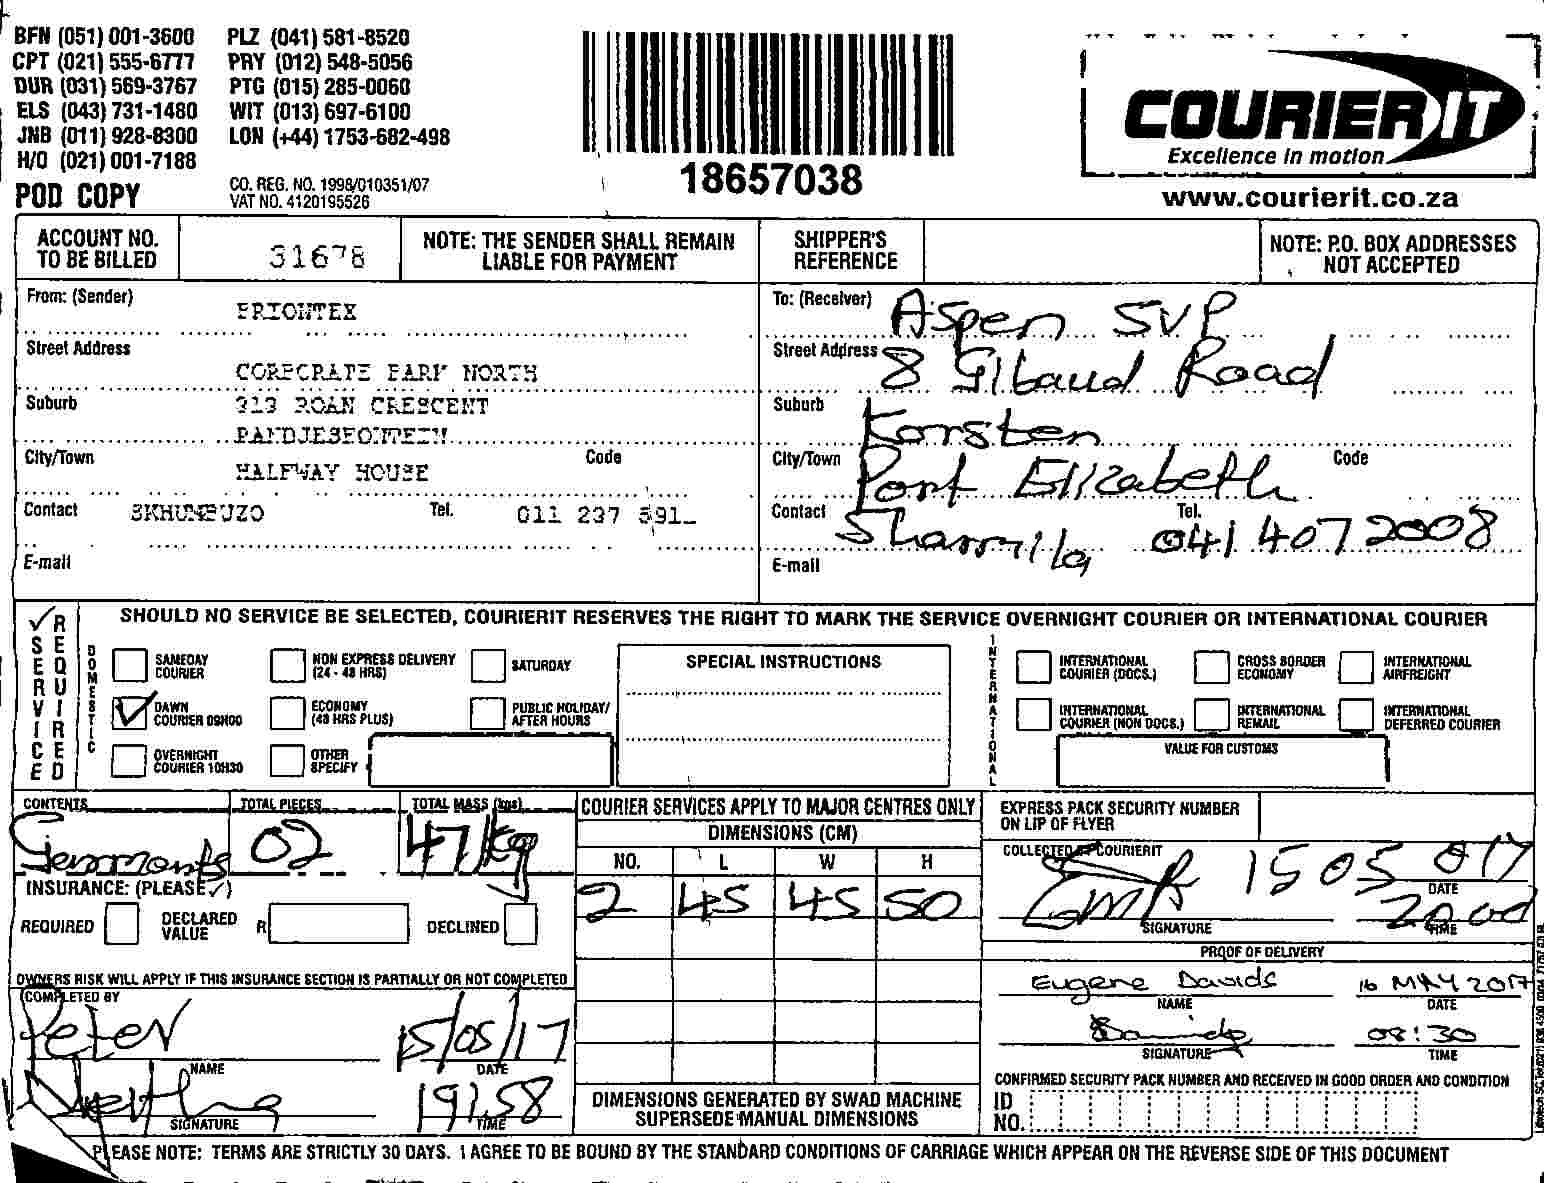 BFN (051) 001-3600 PLZ (041) 581-8520
CPT (021) 555-6777 PRY (012) 548-5056
DUR (031) 569-3767 PTG (015) 285-0060
ELS (043) 731-1480 WIT (013) 697-6100
JNB (011) 928-8300 LON (+44) 1753-682-498
H/O (021) 001-7188
POD COPY
CO. REG. NO. 1998/010351/07
VAT NO. 4120195526
18657038
COURIER IT
Excellence in motion
www.courierit.co.za
ACCOUNT NO. TO BE BILLED
31678
NOTE: THE SENDER SHALL REMAIN LIABLE FOR PAYMENT
SHIPPER'S REFERENCE
NOTE: P.O. BOX ADDRESSES NOT ACCEPTED
From: (Sender)
BRIONTEX
Street Address
CORPORATE PARK NORTH
Suburb
313 ROAN CRESCENT
RANDJESFONTEIN
City/Town
HALFWAY HOUSE
Code
Contact
SKHUMBUZO
Tel.
011 237 591
E-mail
To: (Receiver)
Aspen SVP
Street Address
8 Gibaud Road
Suburb
Korsten
City/Town
Port Elizabeth
Code
Contact
Sharmilla
Tel.
041 407 2008
E-mail
SERVICE REQUIRED
SHOULD NO SERVICE BE SELECTED, COURIERIT RESERVES THE RIGHT TO MARK THE SERVICE OVERNIGHT COURIER OR INTERNATIONAL COURIER
DOMESTIC
SAMEDAY COURIER
NON EXPRESS DELIVERY (24 - 48 HRS)
SATURDAY
DAWN COURIER 09H00
ECONOMY (48 HRS PLUS)
PUBLIC HOLIDAY/ AFTER HOURS
OVERNIGHT COURIER 10H30
OTHER SPECIFY
SPECIAL INSTRUCTIONS
INTERNATIONAL
INTERNATIONAL COURIER (DOCS.)
CROSS BORDER ECONOMY
INTERNATIONAL AIRFREIGHT
INTERNATIONAL COURIER (NON DOCS.)
INTERNATIONAL REMAIL
INTERNATIONAL DEFERRED COURIER
VALUE FOR CUSTOMS
CONTENTS
Garments
TOTAL PIECES
02
TOTAL MASS (kgs)
47kg
INSURANCE: (PLEASE ✓)
REQUIRED
DECLARED VALUE
R
DECLINED
OWNERS RISK WILL APPLY IF THIS INSURANCE SECTION IS PARTIALLY OR NOT COMPLETED
COMPLETED BY
Peter
NAME
15/05/17
DATE
SIGNATURE
19:58
TIME
COURIER SERVICES APPLY TO MAJOR CENTRES ONLY
DIMENSIONS (CM)
NO. L W H
2 45 45 50
DIMENSIONS GENERATED BY SWAD MACHINE SUPERSEDE MANUAL DIMENSIONS
EXPRESS PACK SECURITY NUMBER ON LIP OF FLYER
COLLECTED BY COURIERIT
SIGNATURE
DATE
TIME
PROOF OF DELIVERY
Eugene Davids
NAME
16 MAY 2017
DATE
Davids
SIGNATURE
08:30
TIME
CONFIRMED SECURITY PACK NUMBER AND RECEIVED IN GOOD ORDER AND CONDITION
ID NO.
PLEASE NOTE: TERMS ARE STRICTLY 30 DAYS. I AGREE TO BE BOUND BY THE STANDARD CONDITIONS OF CARRIAGE WHICH APPEAR ON THE REVERSE SIDE OF THIS DOCUMENT